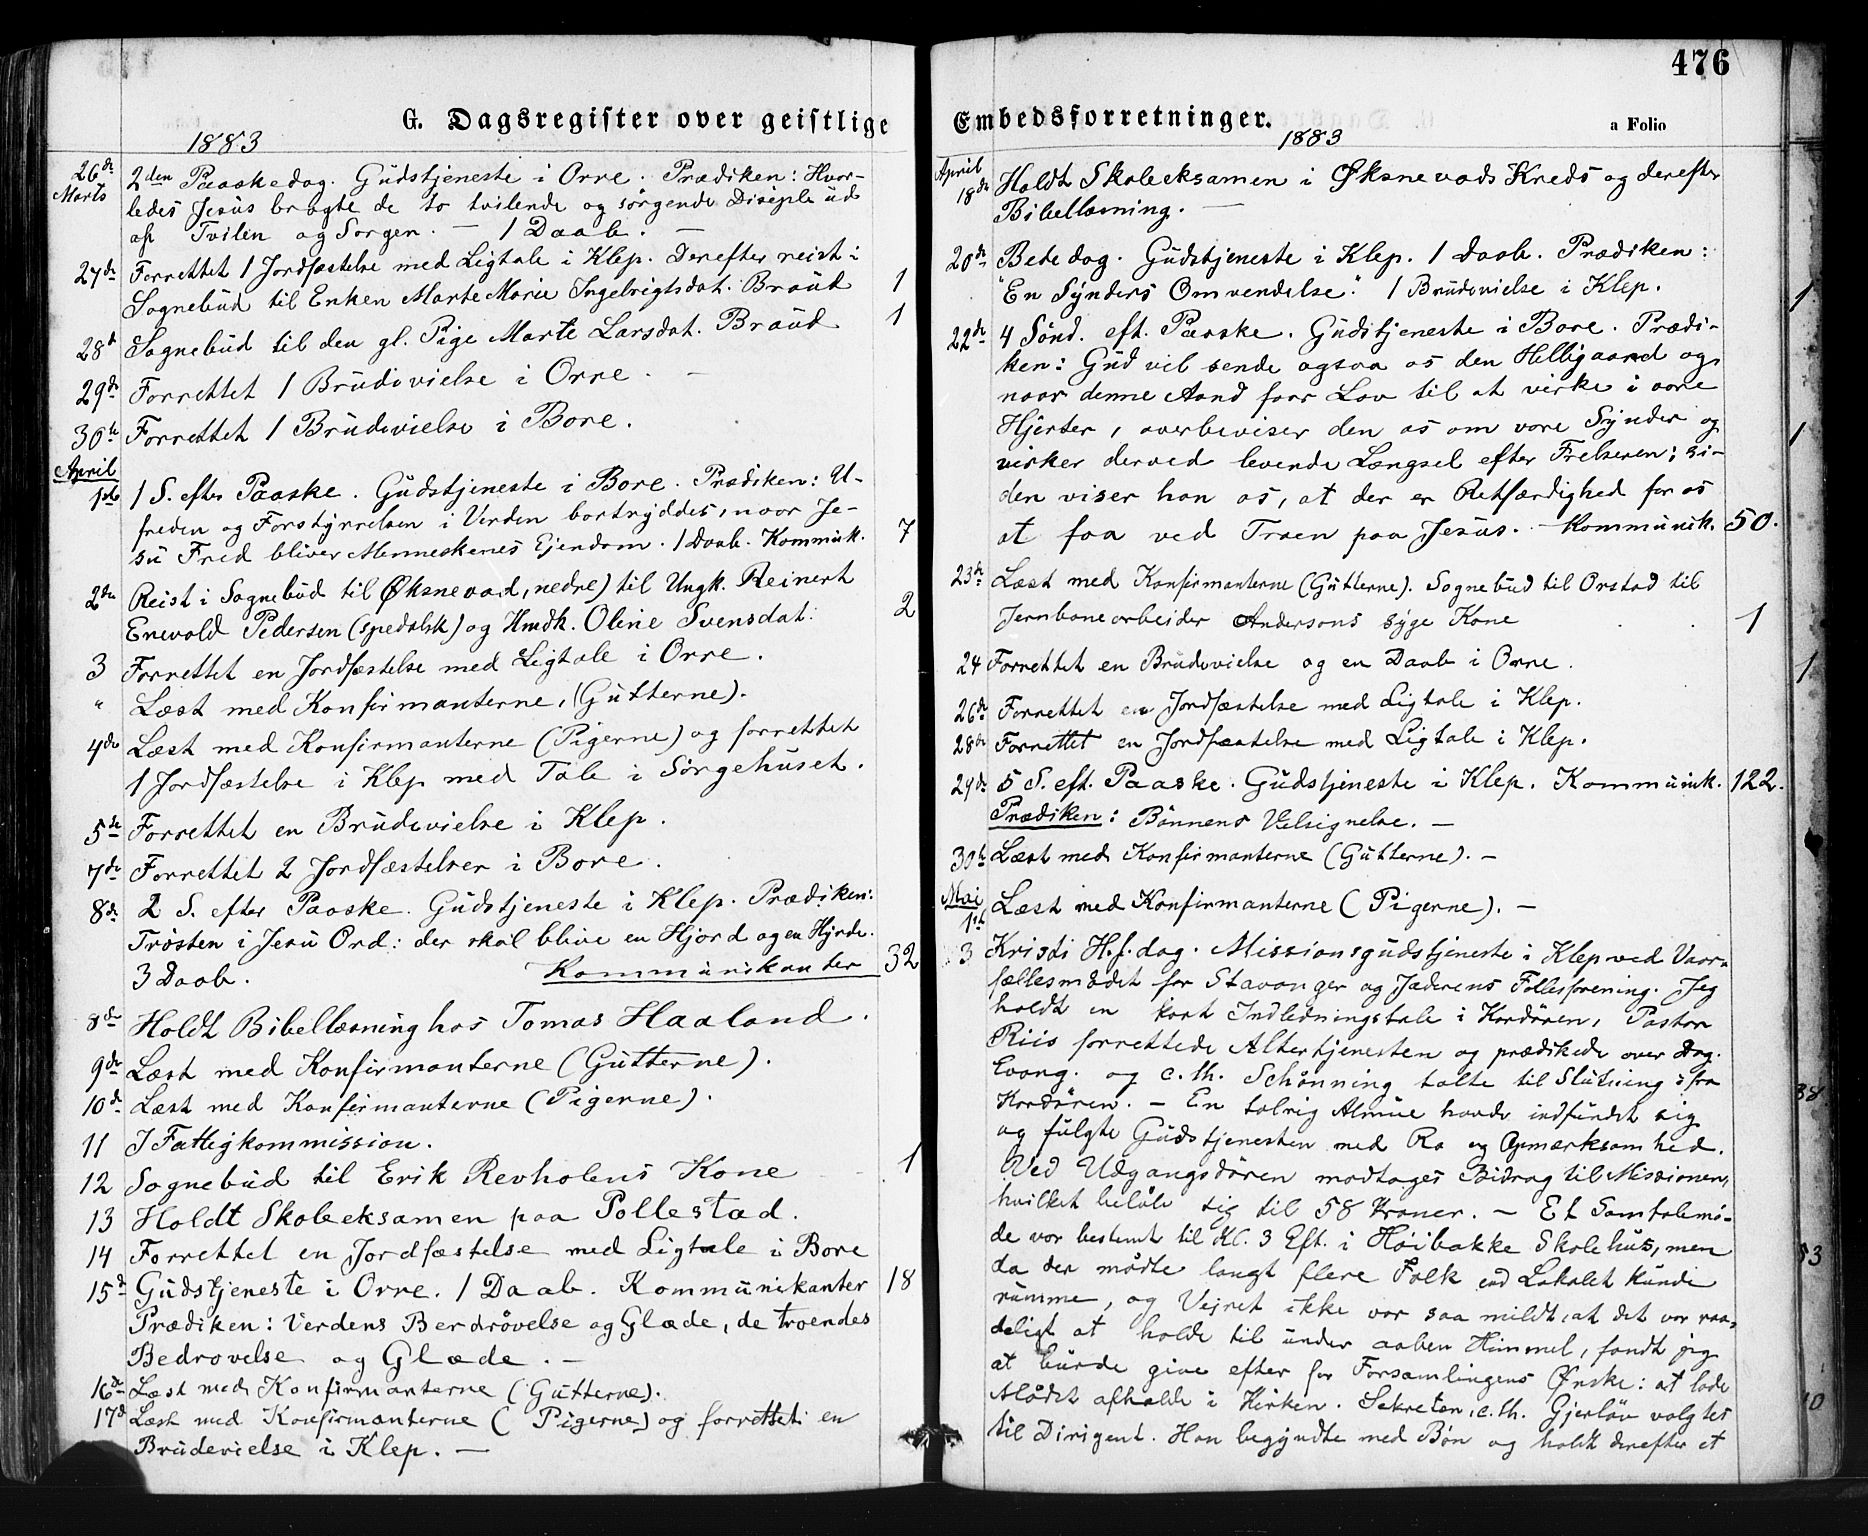 G. Dagsregister over geistlige
1883
26de Marts 2den Paaskedag. Gudstjeneste i Orre. Prædiken: Hvor-
ledes Jesus bragte de to tvilende og sørgende Disciple ud
af Tvilen og Sorgen. — 1 Daab. —
27de Forrettet 1 Jordfæstelse med Ligtale i Klep. Derefter reist i
Sognebud til Enken Marte Marie Ingebrigtsdat. Braud 1
28d Sognebud til den gl. Pige Marte Larsdat. Braud 1
29de Forrettet 1 Brudevielse i Orre. —
30te Forrettet 1 Brudevielse i Bore.
April
1ste 1 S. efter Paaske. Gudstjeneste i Bore. Prædiken: U-
freden og Forstyrrelsen i Verden bortryddes, naar Je-
su Fred bliver Menneskenes Ejendom. 1 Daab. Kommunik. 7
2den Reist i Sognebud til Øksnevad, nedre) til Ungk. Reinert
Enevold Pedersen (spedalsk) og Hmdk. Oline Svensdat. 2
3 Forrettet en Jordfæstelse med Ligtale i Orre.
" Læst med Konfirmanterne, (Gutterne).
4de Læst med Konfirmanterne (Pigerne) og forrettet
1 Jordfæstelse i Klep med Tale i Sørgehuset.
5te Forrettet en Brudevielse i Klep.
7de Forrettet 2 Jordfæstelser i Bore.
8de 2 S. efter Paaske. Gudstjeneste i Klep. Prædiken:
Trøsten i Jesu Ord: der skal blive en Hjord og en Hyrde.
3 Daab. Kommunikanter 32
8de Holdt Bibellæsning hos Tomas Haaland.
9de Læst med Konfirmanterne (Gutterne).
10de Læst med Konfirmanterne (Pigerne).
11 I Fattigkommission.
12 Sognebud til Erik Revholens Kone 1
13 Holdt Skoleeksamen paa Pollestad.
14 Forrettet en Jordfæstelse med Ligtale i Bore
15d Gudstjeneste i Orre. 1 Daab. Kommunikanter 18
Prædiken: Verdens Berdrøvelse og Glæde, de troendes
Bedrøvelse og Glæde. —
16de Læst med Konfirmanterne (Gutterne).
17d Læst med Konfirmanterne (Pigerne) og forrettet en
Brudevielse i Klep. —
476
Embedsforretninger.
a Folio
1883
April
18de Holdt Skoleeksamen i Øksnevads Kreds og derefter
Bibellæsning. —
20de Bededag. Gudstjeneste i Klep. 1 Daab. Prædiken:
"En Synders Omvendelse." 1 Brudevielse i Klep.
22de 4 Sønd. eft. Paaske. Gudstjeneste i Bore. Prædi-
ken: Gud vil sende ogsaa os den Helligaand og
naar denne Aand faar Lov til at virke i vore
Hjerter, overbeviser den os om vore Synder og
virker derved levende Længsel efter Frelseren; si-
den viser han os, at der er Retfærdighed for os
at faa ved Troen paa Jesus. — Kommunik. 50.
23de Læst med Konfirmanterne (Gutterne). Sognebud til Orstad til
Jernbanearbeider Andersons syge Kone 1
24 Forrettet en Brudevielse og en Daab i Orre.
26de Forrettet en Jordfæstelse med Ligtale i Klep.
28de Forrettet en Jordfæstelse med Ligtale i Klep.
29de 5 S. eft. Paaske. Gudstjeneste i Klep. Kommunik. 122.
Prædiken: Bønnens Velsignelse. —
30te Læst med Konfirmanterne (Gutterne). —
Mai
1ste Læst med Konfirmanterne (Pigerne). —
3 Kristi H.f.dag. Missionsgudstjeneste i Klep ved Vaar-
fællesmødet for Stavanger og Jæderens Fællesforening. Jeg
holdt en kort Indledningstale i Kordøren, Pastor
Riis forrettede Altertjenesten og prædikede over Dag.
Evang. og c. th. Schønning talte til Slutning fra
Kordøren. — En talrig Almue havde indfundet sig
og fulgte Gudstjenesten med Ro og Opmærksomhed.
Ved Udgangsdøren modtages Bidrag til Missionen,
hvilket beløb sig til 58 Kroner. — Et Samtalemø-
de var bestemt til Kl. 3 Eft. i Høibakke Skolehus, men
da der mødte langt flere Folk end Lokalet kunde
rumme, og Vejret ikke var saa mildt, at det var raa-
deligt at holde til under aaben Himmel, fandt jeg
at burde give efter for Forsamlingens Ønske: at lade
Mødet afholde i Kirken. Sekretær, c. th. Gjerløv valgtes
til Dirigent. Han begyndte med Bøn og holdt derefter et
1
1
1
38
53
10